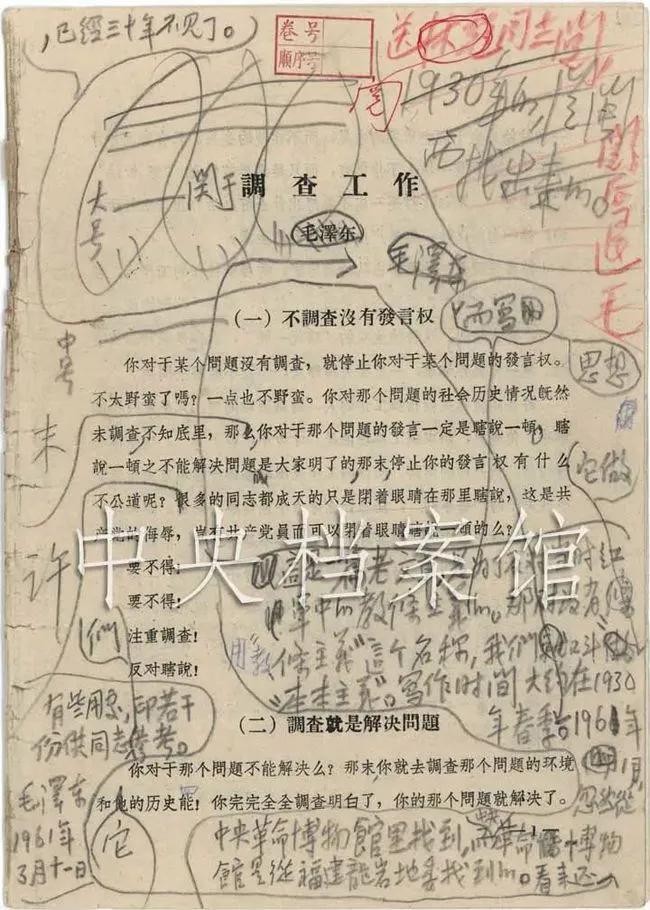 ，已經三十年不見了。
卷号
順序号
1930年的，
找出来的。
大号
关于
調查工作
毛澤东
毛澤东
(一) 不調查沒有發言权
中号
你对于某个問題沒有調查，就停止你对于某个問題的發言权。
不太野蛮了嗎？一点也不野蛮。你对那个問題的社会历史情况旣然
未調查不知底里，那么你对于那个問題的發言一定是瞎說一頓，瞎
說一頓之不能解决問題是大家明了的，那末停止你的發言权有什么
不公道呢？很多的同志都成天的只是閉着眼睛在那里瞎說，这是共
产党的侮辱，豈有共产党員而可以閉着眼睛瞎說一頓的么？
思想
它做
末
許
們
中央档案馆
要不得！
要不得！
注重調查！
反对瞎說！
這是一篇老文章，是为了反对当时紅
軍中的教條主義的。那时沒有
用“教條主義”這个名称，我們叫它
“本本主義”。寫作时间大約在1930
年春季。1961年
1月，
忽然從
中央革命博物館里找到，
館是從福建龍岩地委找到的。看来还
有些用处，印若干
份供同志參考。
毛澤东
1961年
3月十一日
(二) 調查就是解决問題
你对于那个問題不能解决么？那末你就去調查那个問題的环境
和他的历史能！你完完全全調查明白了，你的那个問題就解决了。
它